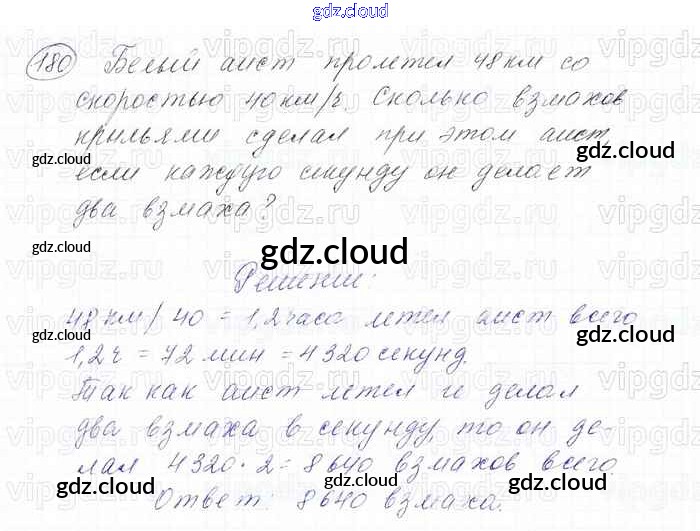 gdz.cloud
180 Белый аист пролетел 48 км со
скоростью 40 км/ч. Сколько взмахов
крыльями сделал при этом аист,
gdz.cloud gdz.cloud
если каждую секунду он делает
два взмаха?
gdz.cloud gdz.cloud
Решение:
48 км / 40 = 1,2 часа летел аист всего
gdz.cloud gdz.cloud
1,2 ч = 72 мин = 4320 секунд.
Так как аист летел и делал
два взмаха в секунду, то он де-
gdz.cloud gdz.cloud
лал 4320 · 2 = 8640 взмахов всего
Ответ: 8640 взмаха.